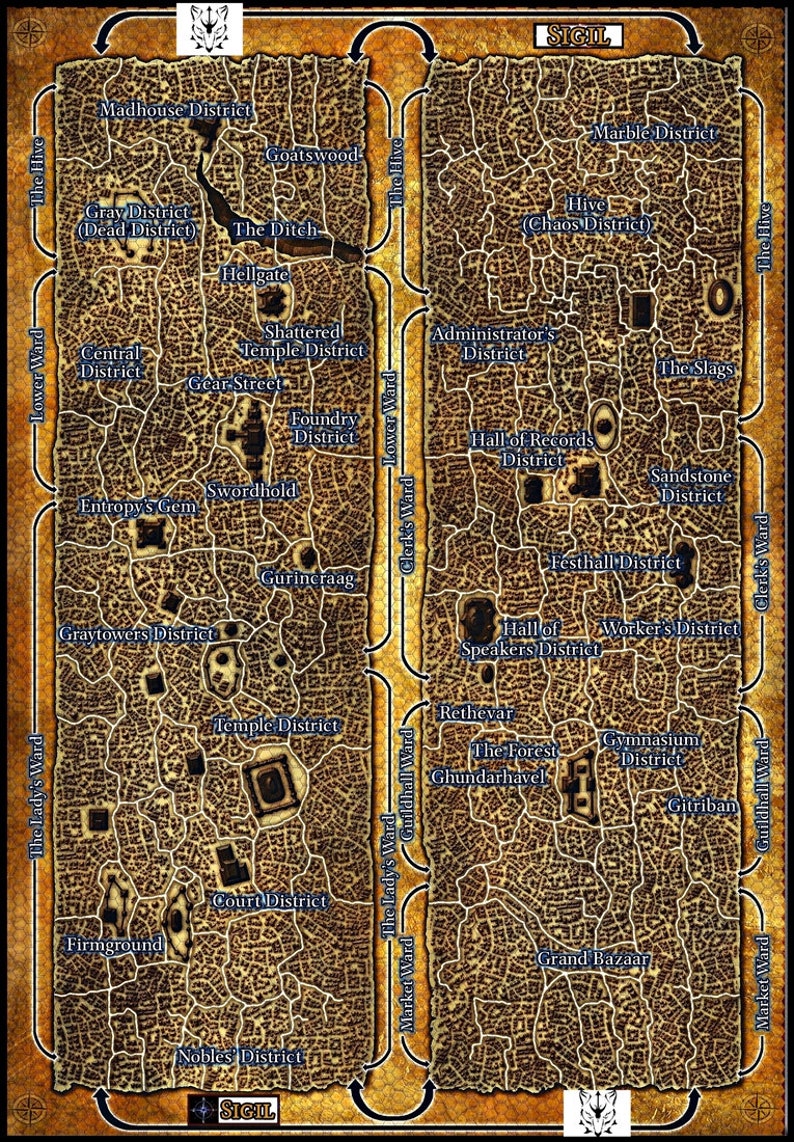 SIGIL
Madhouse District
Goatswood
The Hive
Gray District
(Dead District)
The Ditch
Hellgate
Shattered
Temple District
Central
District
Gear Street
Foundry
District
Lower Ward
Swordhold
Entropy's Gem
Gurincraag
Graytowers District
Temple District
The Lady's Ward
Court District
Firmground
Nobles' District
The Hive
Lower Ward
The Lady's Ward
The Hive
Marble District
Hive
(Chaos District)
Administrator's
District
The Slags
Hall of Records
District
Sandstone
District
Clerk's Ward
Festhall District
Hall of
Speakers District
Worker's District
Rethevar
The Forest
Ghundarhavel
Gymnasium
District
Gitriban
Guildhall Ward
Grand Bazaar
Market Ward
Clerk's Ward
Guildhall Ward
Market Ward
SIGIL